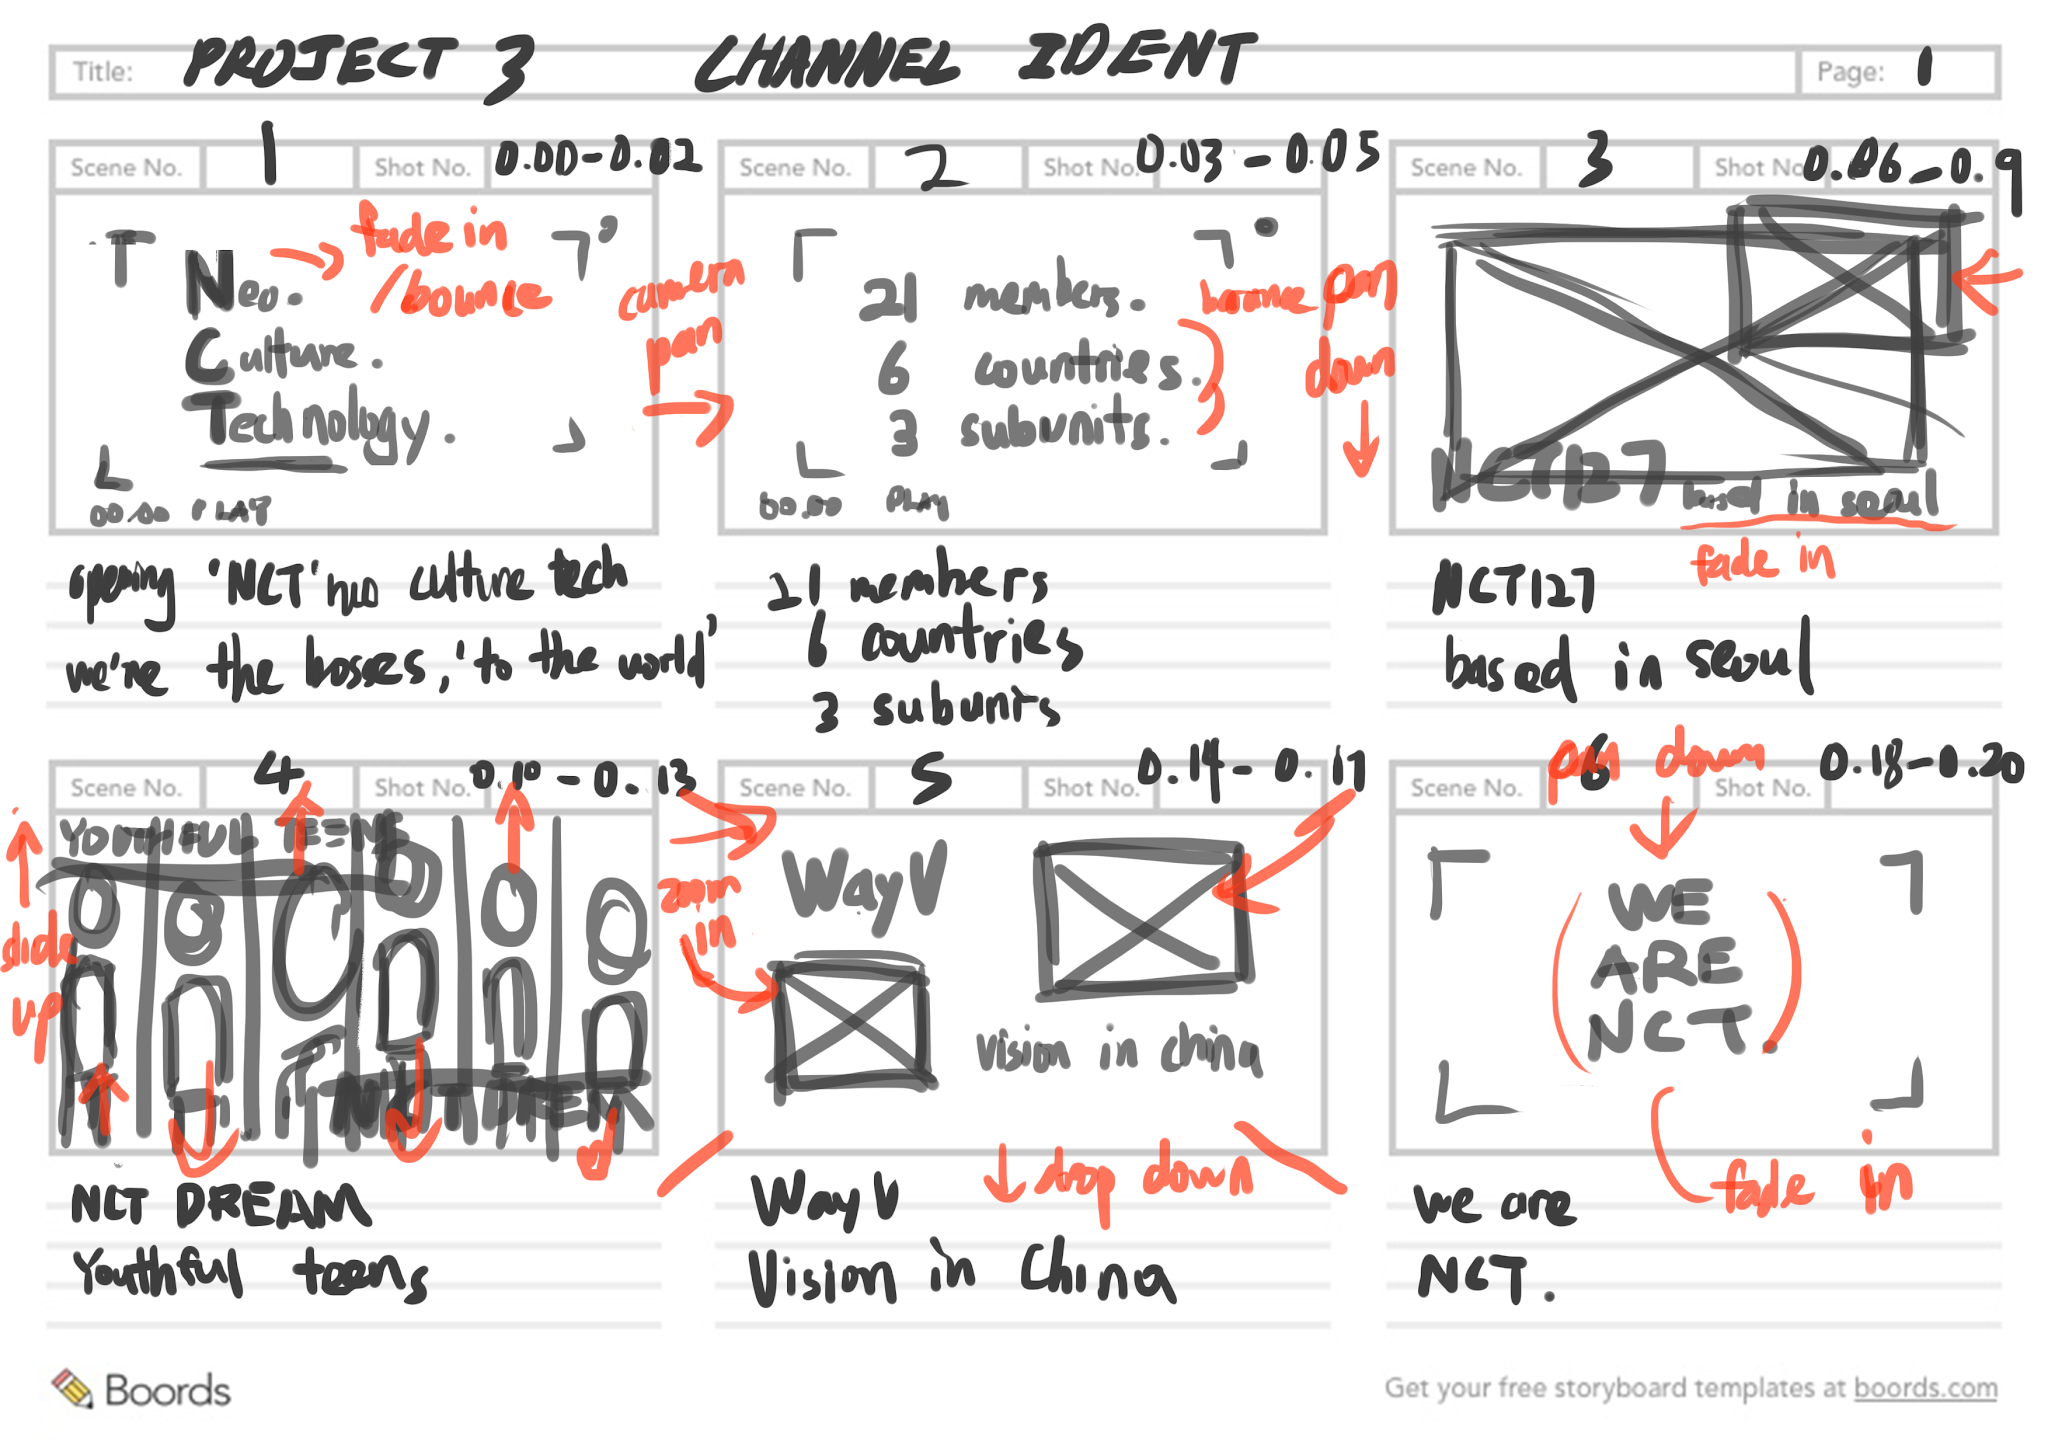 Title: PROJECT 3 CHANNEL IDENT
Page: 1
Scene No. 1 Shot No. 0.00-0.02
Neo.
Culture.
Technology.
00.00 PLAY
fade in
/bounce
opening 'NCT' neo culture tech
we're the bosses, 'to the world'
camera
pan
Scene No. 2 Shot No. 0.03-0.05
21 members.
6 countries.
3 subunits.
00.00 PLAY
bounce
21 members
6 countries
3 subunits
pan
down
Scene No. 3 Shot No. 0.06-0.9
NCT127 based in seoul
fade in
NCT127
based in seoul
Scene No. 4 Shot No. 0.10-0.13
YOUTHFUL TEENS
slide
up
NCT DREAM
NCT DREAM
Youthful teens
zoom
in
Scene No. 5 Shot No. 0.14-0.17
WayV
vision in china
drop down
WayV
Vision in China
Scene No. 6 Shot No. 0.18-0.20
pan down
WE
ARE
NCT.
fade in
we are
NCT.
Boords
Get your free storyboard templates at boords.com